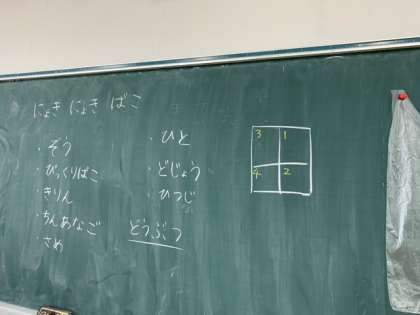 にょき にょき ばこ
・ぞう
・びっくりばこ
・きりん
・ちんあなご
・さめ
・ひと
・どじょう
・ひつじ
どうぶつ
3 1
4 2